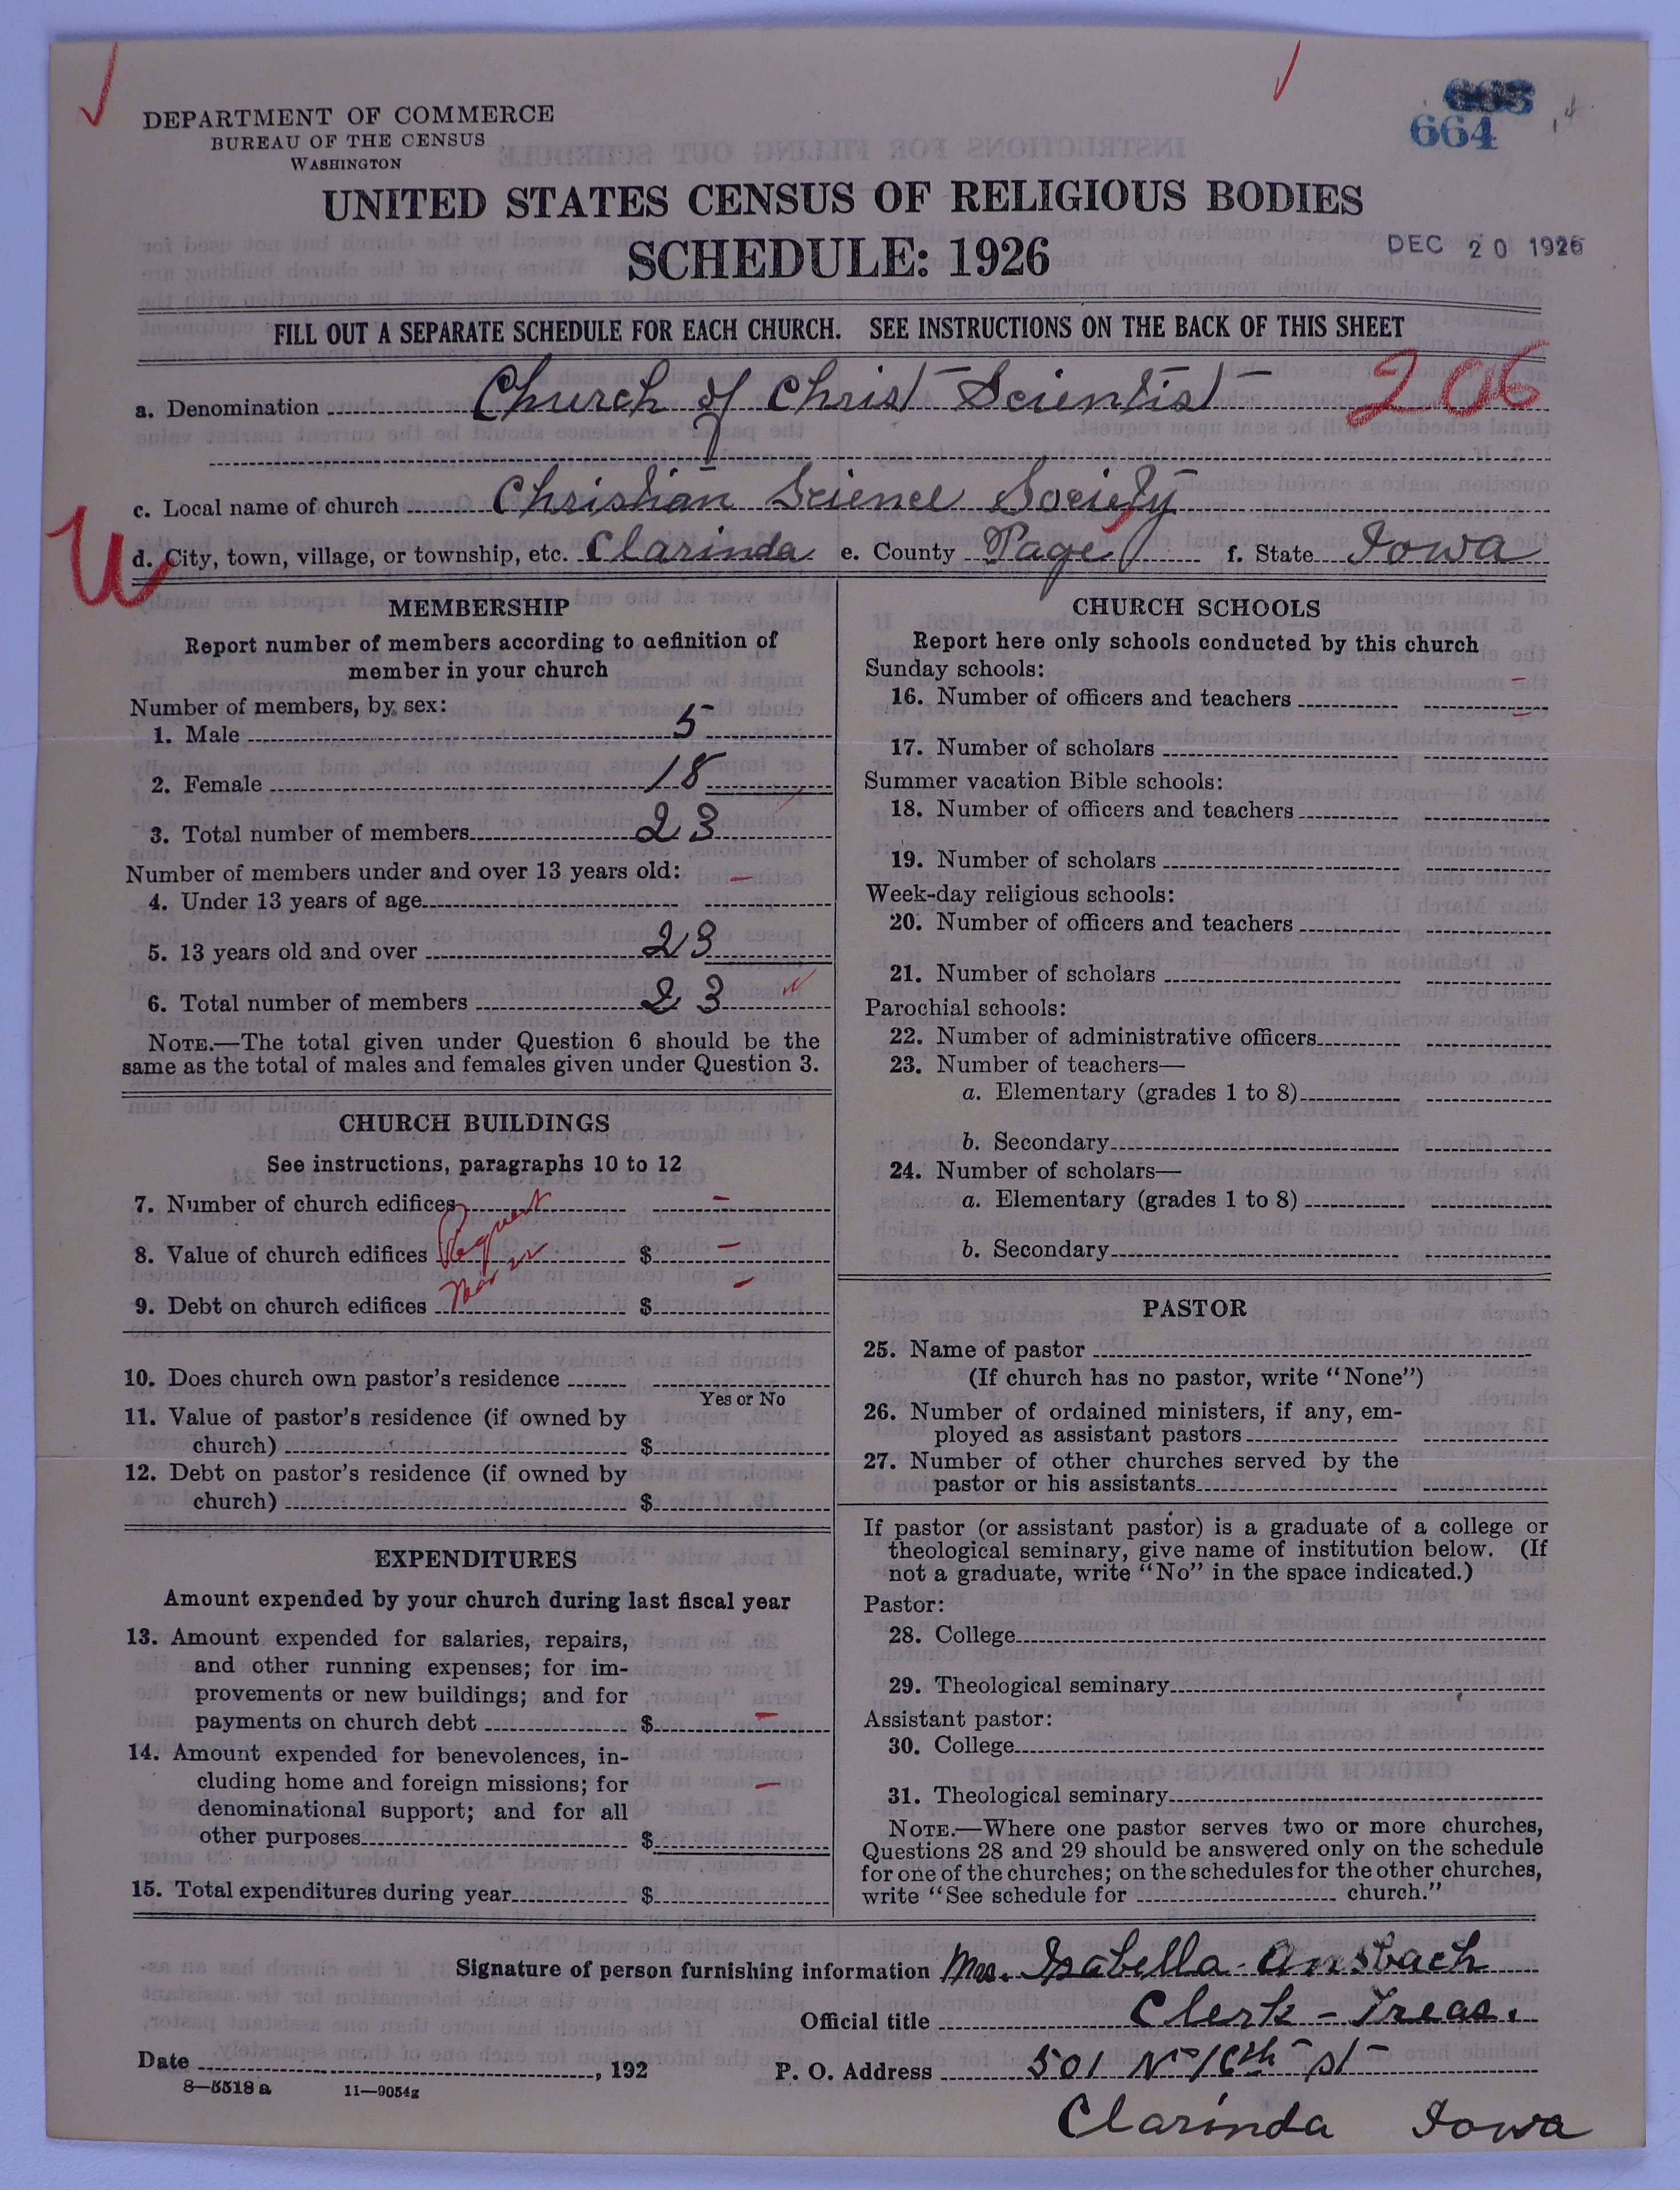 DEPARTMENT OF COMMERCE
BUREAU OF THE CENSUS
WASHINGTON
664
UNITED STATES CENSUS OF RELIGIOUS BODIES
SCHEDULE: 1926
DEC 20 1926
FILL OUT A SEPARATE SCHEDULE FOR EACH CHURCH. SEE INSTRUCTIONS ON THE BACK OF THIS SHEET
a. Denomination Church of Christ Scientist 206
c. Local name of church Christian Science Society
U
d. City, town, village, or township, etc. Clarinda e. County Page f. State Iowa
MEMBERSHIP
Report number of members according to definition of
member in your church
Number of members, by sex:
1. Male 5
2. Female 18
3. Total number of members 23
Number of members under and over 13 years old:
4. Under 13 years of age –
5. 13 years old and over 23
6. Total number of members 23
NOTE.—The total given under Question 6 should be the
same as the total of males and females given under Question 3.
CHURCH BUILDINGS
See instructions, paragraphs 10 to 12
7. Number of church edifices –
8. Value of church edifices $ –
9. Debt on church edifices $ –
10. Does church own pastor's residence
Yes or No
11. Value of pastor's residence (if owned by
church) $
12. Debt on pastor's residence (if owned by
church) $
EXPENDITURES
Amount expended by your church during last fiscal year
13. Amount expended for salaries, repairs,
and other running expenses; for im-
provements or new buildings; and for
payments on church debt $ –
14. Amount expended for benevolences, in-
cluding home and foreign missions; for
denominational support; and for all
other purposes $ –
15. Total expenditures during year $
CHURCH SCHOOLS
Report here only schools conducted by this church
Sunday schools:
16. Number of officers and teachers –
17. Number of scholars –
Summer vacation Bible schools:
18. Number of officers and teachers
19. Number of scholars
Week-day religious schools:
20. Number of officers and teachers
21. Number of scholars
Parochial schools:
22. Number of administrative officers
23. Number of teachers—
a. Elementary (grades 1 to 8)
b. Secondary
24. Number of scholars—
a. Elementary (grades 1 to 8)
b. Secondary
PASTOR
25. Name of pastor
(If church has no pastor, write "None")
26. Number of ordained ministers, if any, em-
ployed as assistant pastors
27. Number of other churches served by the
pastor or his assistants
If pastor (or assistant pastor) is a graduate of a college or
theological seminary, give name of institution below. (If
not a graduate, write "No" in the space indicated.)
Pastor:
28. College
29. Theological seminary
Assistant pastor:
30. College
31. Theological seminary
NOTE.—Where one pastor serves two or more churches,
Questions 28 and 29 should be answered only on the schedule
for one of the churches; on the schedules for the other churches,
write "See schedule for church."
Signature of person furnishing information Mrs. Isabella Ansbach
Official title Clerk - Treas.
Date , 192 P. O. Address 501 N 16th St
8—5518 a 11—9054g
Clarinda Iowa